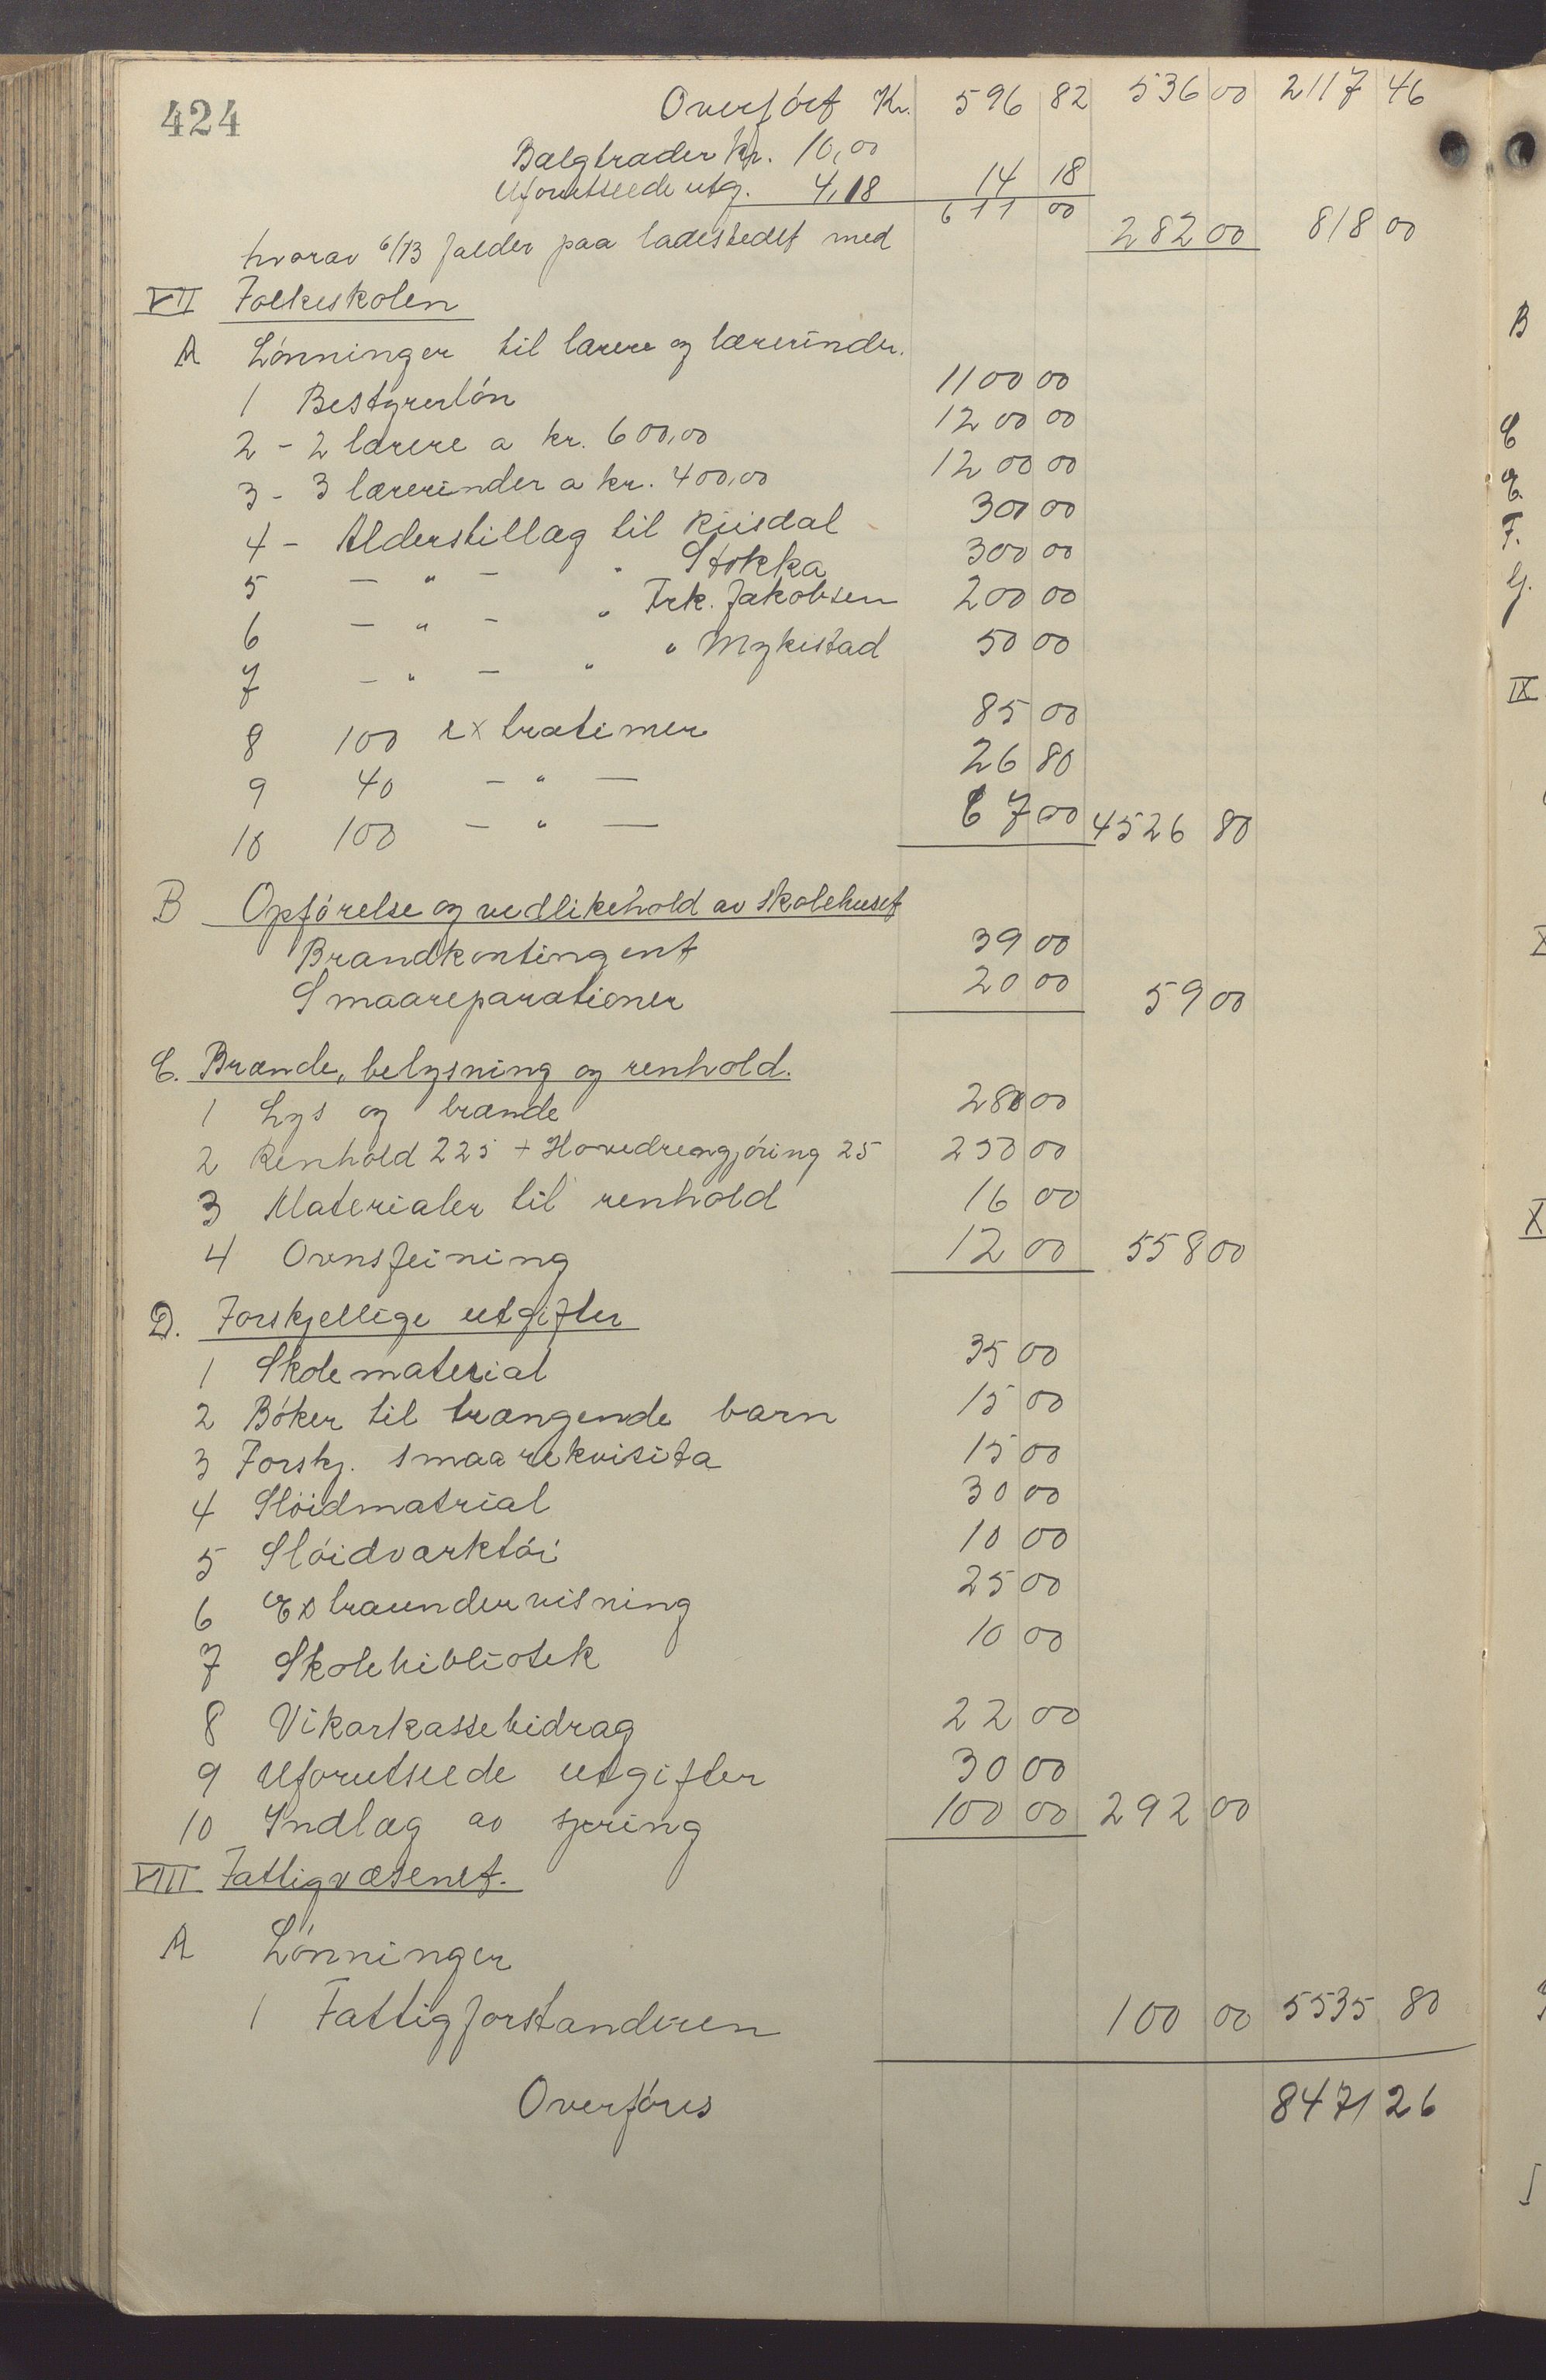 424
Overført Kr. 596 82 536 00 2117 46
Bælgtræder kr. 10,00
Uforutseede utg. 4,18 14 18
611 00
hvorav 6/13 falder paa ladestedet med 282 00 818 00
VII Folkeskolen
A Lønninger til lærere og lærerinder.
1 Bestyrerløn 1100 00
2 - 2 lærere a kr. 600,00 1200 00
3 - 3 lærerinder a kr. 400,00 1200 00
4 - Alderstillæg til Riisdal 300 00
5 - " - " Stokka 300 00
6 - " - " Frk. Jakobsen 200 00
7 - " - " " Mykistad 50 00
8 100 extratimer 85 00
9 40 - " - 26 80
10 100 - " - 67 00 4526 80
B Opførelse og vedlikehold av skolehuset
Brandkontingent 39 00
Smaareparationer 20 00 59 00
C. Brænde, belysning og renhold.
1 Lys og brænde 280 00
2 Renhold 225 + Hovedrengjøring 25 250 00
3 Materialer til renhold 16 00
4 Ovnsfeining 12 00 558 00
D. Forskjellige utgifter
1 Skolematerial 35 00
2 Bøker til trængende barn 15 00
3 Forskj. smaarekvisita 15 00
4 Sløidmatrial 30 00
5 Sløidværktøi 10 00
6 Extraundervisning 25 00
7 Skolebibliotek 10 00
8 Vikarkassebidrag 22 00
9 Uforutseede utgifter 30 00
10 Indlæg av spring 100 00 292 00
VIII Fattigvæsenet.
A Lønninger
1 Fattigforstanderen 100 00 5535 80
Overføres 8471 26
B
C
E.
F.
G.
IX
X